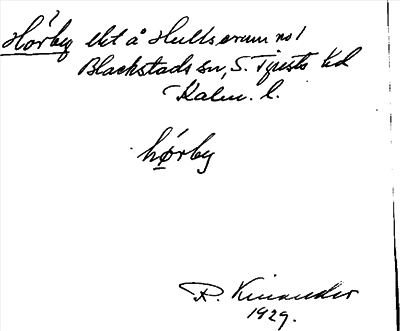 Hörby lht å Hultserum no 1
Blackstads sn, S. Tjusts hd
Kalm. l.
hö́rby
R. Kinander
1929.